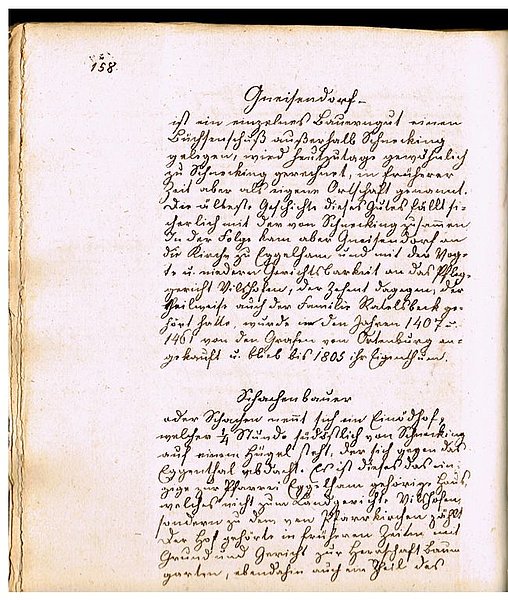 158.
Gneisendorf
ist ein einzelnes Bauerngut einen
Büchsenschuß außerhalb Schnecking
gelegen, wird heutzutage gewöhnlich
zu Schnecking gerechnet, in früherer
Zeit aber als eigene Ortschaft genannt.
Die älteste Geschichte dieses Gutes fällt si-
cherlich mit der von Schnecking zusammen
In der Folge kam aber Gneisendorf an
die Kirche zu Eggelham und mit der Vog-
tei u. niedern Gerichtsbarkeit an das Pfleg-
gericht Vilshofen, der Zehent dagegen, der
theilweise auch der Familie Kadelsbeck ge-
hört hatte, wurde in den Jahren 1407 –
1461 von den Grafen von Ortenburg an-
gekauft u. blieb bis 1805 ihr Eigenthum.
Schachenbauer
oder Schachen nennt sich ein Einödhof,
welcher 1/4 Stunde südöstlich von Schnecking
auf einem Hügel steht, der sich gegen das
Eggenthal abdacht. Es ist dieses das ein-
zige zur Pfarrei Eggelham gehörige Haus,
welches nicht zum Landgerichte Vilshofen,
sondern zu dem von Pfarrkirchen zählt
Der Hof gehörte in früheren Zeiten mit
Grund und Gericht zur Herrschaft Baum
garten, ebendahin auch ein Theil des